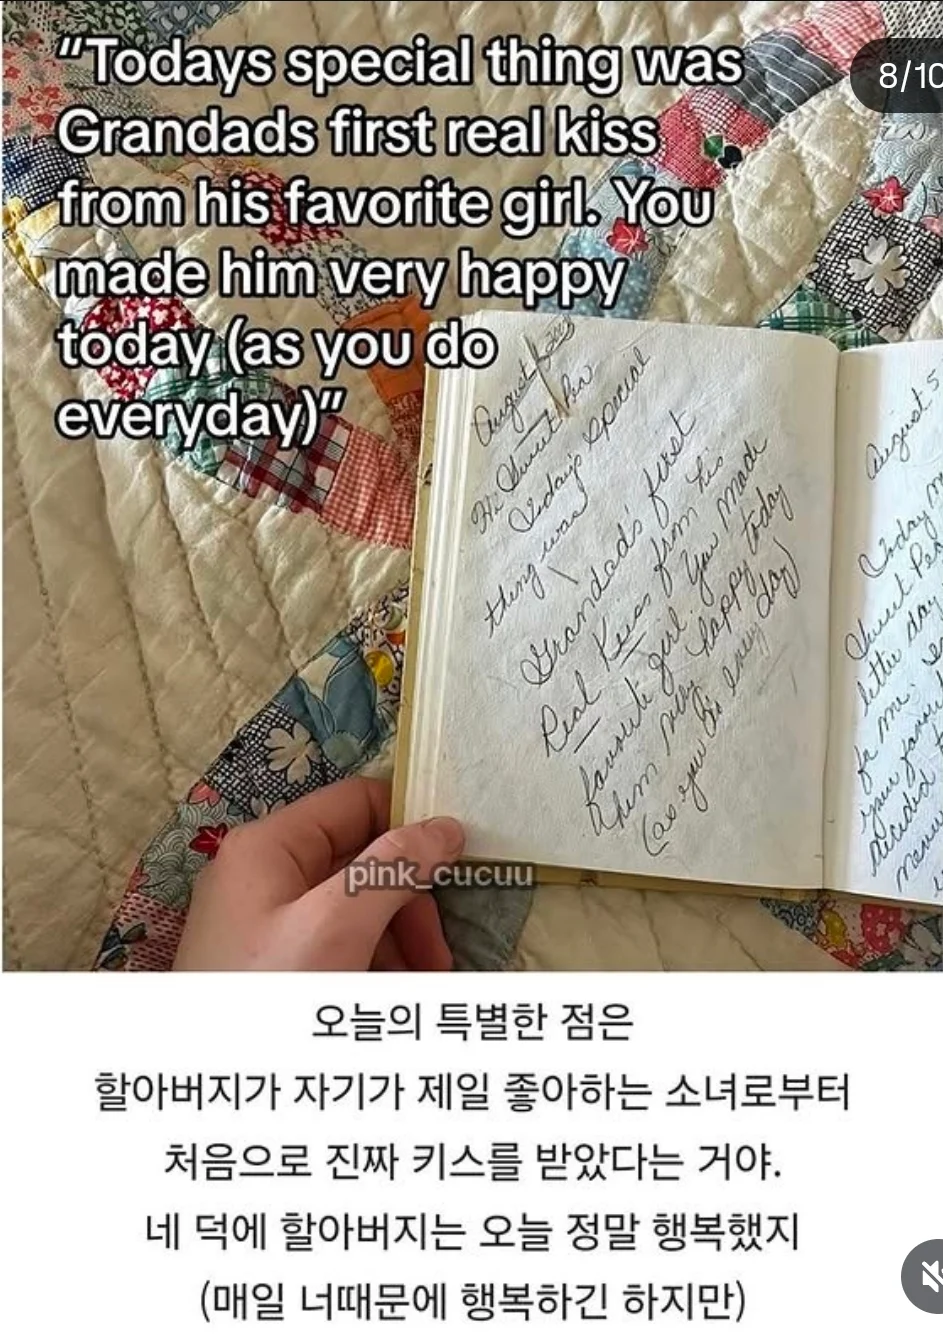 "Todays special thing was
Grandads first real kiss
from his favorite girl. You
made him very happy
today (as you do
everyday)"
8/10
August
Hi Sweet
Today's Special
thing was
Grandad's first
Real Kiss from his
favourite girl. You made
him very happy today
(as you do every day)
August 5
Today
Sweet
little day
for me.
your
decided
pink_cucuu
오늘의 특별한 점은
할아버지가 자기가 제일 좋아하는 소녀로부터
처음으로 진짜 키스를 받았다는 거야.
네 덕에 할아버지는 오늘 정말 행복했지
(매일 너때문에 행복하긴 하지만)